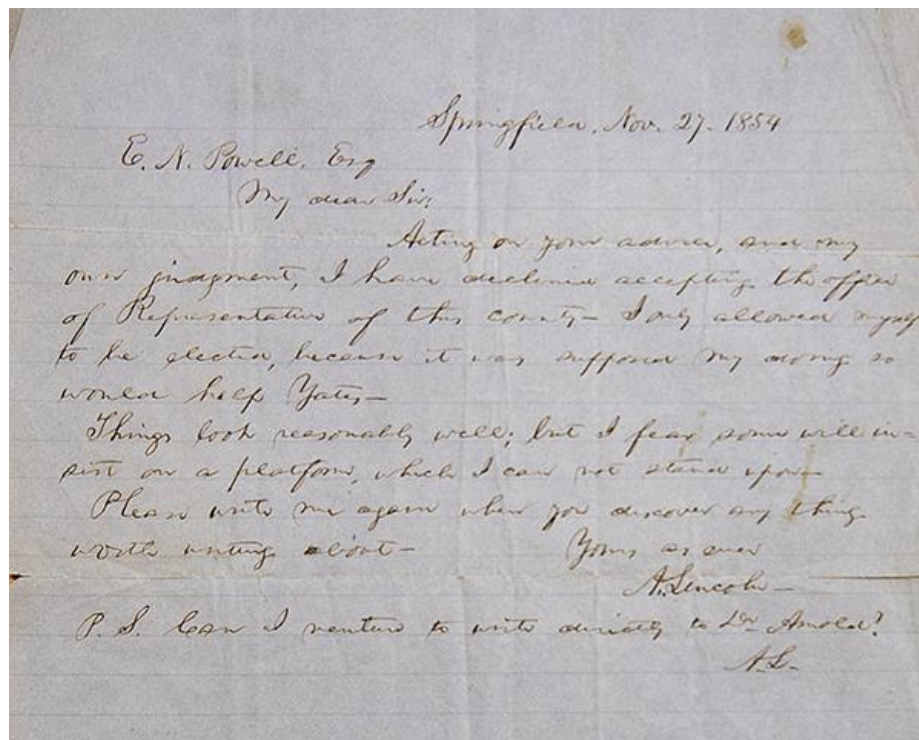 Springfield, Nov. 27. 1854
E. N. Powell, Esq
My dear Sir:
Acting on your advice, and my
own judgment, I have declined accepting the office
of Representative of this county— I only allowed myself
to be elected, because it was supposed my doing so
would help Yates—
Things look reasonably well; but I fear some will in-
sist on a platform, which I can not stand upon—
Please write me again when you discover any thing
worth writing about—
Yours as ever
A. Lincoln—
P. S. Can I venture to write directly to Dr Arnold?
A. L.